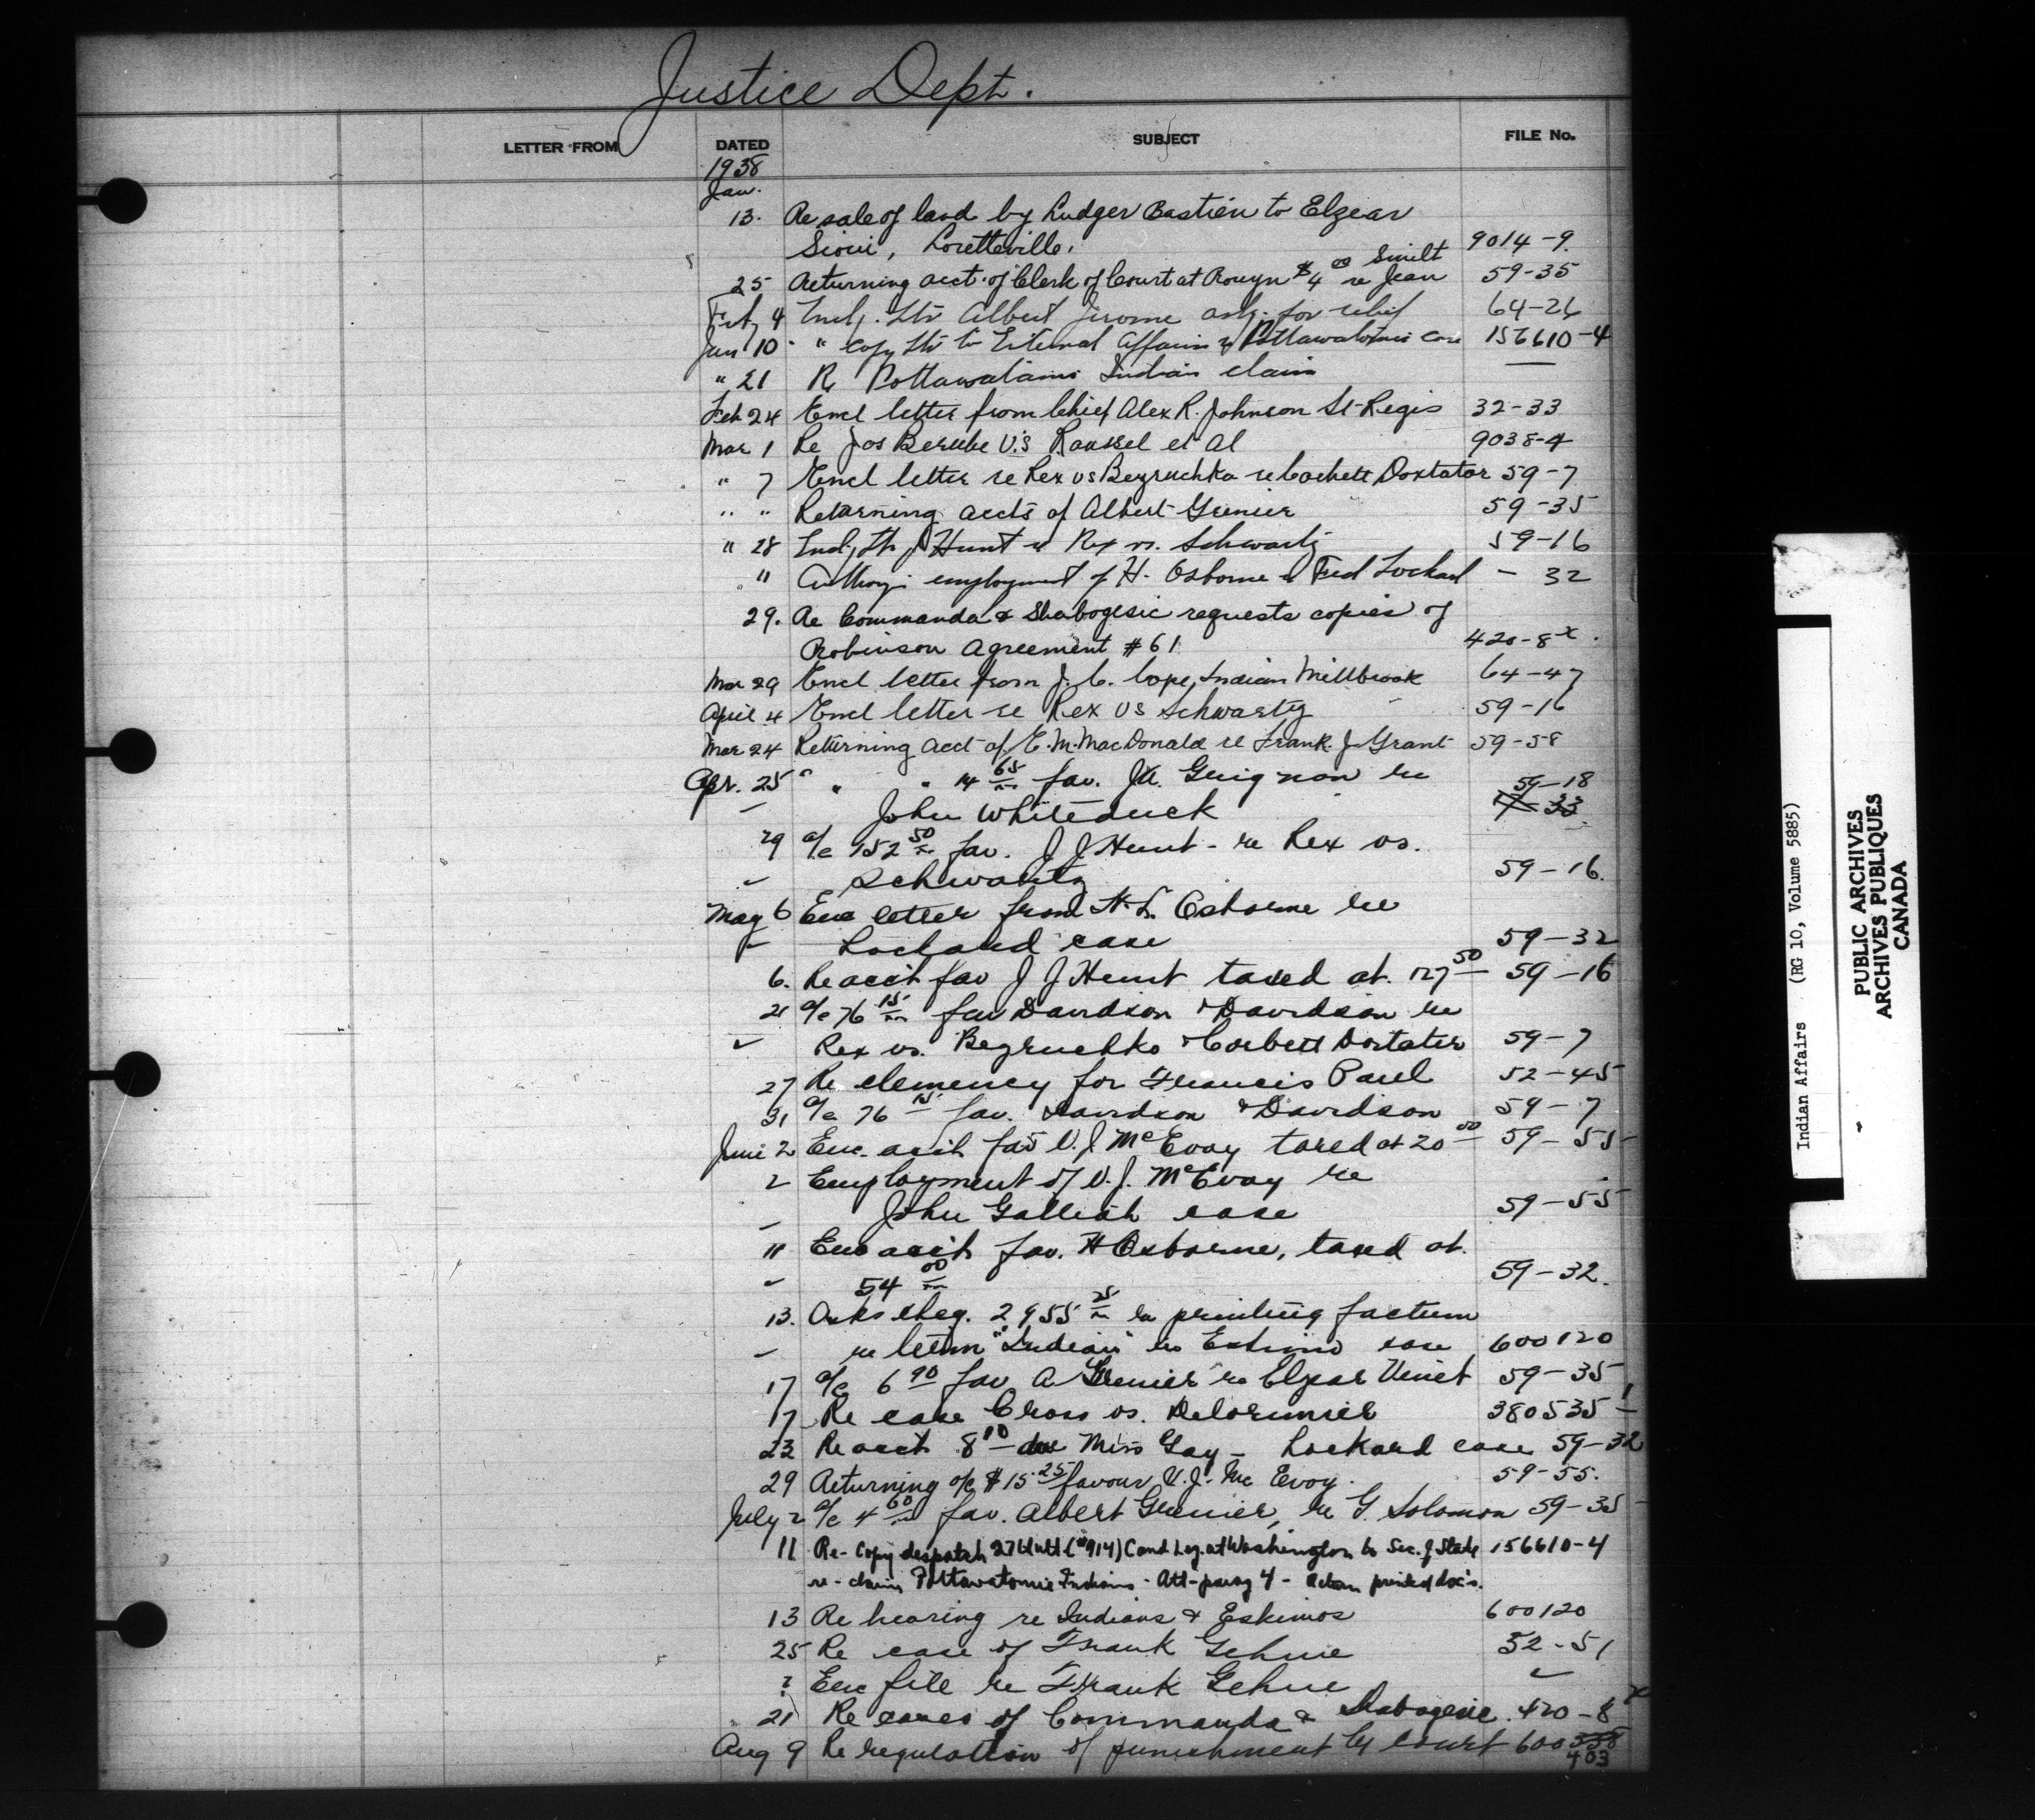 Justice Dept.
LETTER FROM DATED SUBJECT FILE No.
1938
Jan.
13. Re sale of land by Ludger Bastien to Elzear
Sioui, Loretteville. 9014-9.
25 Returning acct. of Clerk of Court at Rouyn $4 00 re Jean Smilt 59-35
Feb 4 Encl. Ltr Albert Jerome ask. for relief 64-26
Jan 10 " copy ltr to External Affairs re Pottawatomie case 156610-4
" 21 Re Pottawatami Indian claim —
Feb 24 Encl letter from Chief Alex R. Johnson St-Regis 32-33
Mar 1 Re Jos Berube V.S Roussel et Al 9038-4
" 7 Encl letter re Rex vs Bezruchka re Corbett Doxtator 59-7
" " Returning accts of Albert Grenier 59-35
" 28 Encl. ltr J Hunt re Rex vs. Schwartz 59-16
" Authorz. employment of H. Osborne re Fred Lockard - 32
29. Re Commanda & Shabogesic requests copies of
Robinson Agreement #61 420-8x.
Mar 29 Encl letter from J. C. Cope, Indian Millbrook 64-47
April 4 Encl letter re Rex vs Schwartz 59-16
Mar 24 Returning acct of E. M. MacDonald re Frank J. Grant 59-58
Apr. 25 " " " 14 65 fav. Guignon re 59-18
John Whiteduck
29 a/c 152 50 fav. J J Hunt - re Rex vs.
Schwartz 59-16.
May 6 Enc letter from H. L. Osborne re
Lockard case 59-32
6. Re acct fav J J Hunt taxed at 127 50 59-16
21 a/c 76 15 fav Davidson & Davidson re
Rex vs. Bezruchko & Corbett Doxtater 59-7
27 Re clemency for Francis Paul 52-45
31 a/c 76 15 fav. Davidson & Davidson 59-7
June 2 Enc. acct fav V. J McEvoy taxed at 20 00 59-55
2 Employment of V. J. McEvoy re
John Galliah case 59-55
11 Enc acct fav. H Osborne, taxed at
54 00 59-32.
13. Asks cheq. 2955 25 re printing factum
re term "Indian" re Eskimo case 600120
17 a/c 6 90 fav A Grenier re Elzear Vinet 59-35
17 Re case Cross vs. Delorimier 380535-1
23 Re acct 8 10 due Miss Gay - Lockard case 59-32
29 Returning a/c $15.25 favour V. J. Mc Evoy. 59-55.
July 2 a/c 4 60 fav. Albert Grenier, re G. Solomon 59-35
11 Re- copy despatch 27th ult (#914) Cand Leg. at Washington to Sec. of State 156610-4
re- claim Pottawatomie Indians - Att- parag 4 - return printed doc's.
13 Re hearing re Indians & Eskimos 600120
25 Re case of Frank Gehue 52-51
? Enc file re Frank Gehue
21 Re cases of Commanda & Shabogesic 420-8x
Aug 9 Re regulation of punishment by court 600 338
403
Indian Affairs (RG 10, Volume 5885)
PUBLIC ARCHIVES
ARCHIVES PUBLIQUES
CANADA